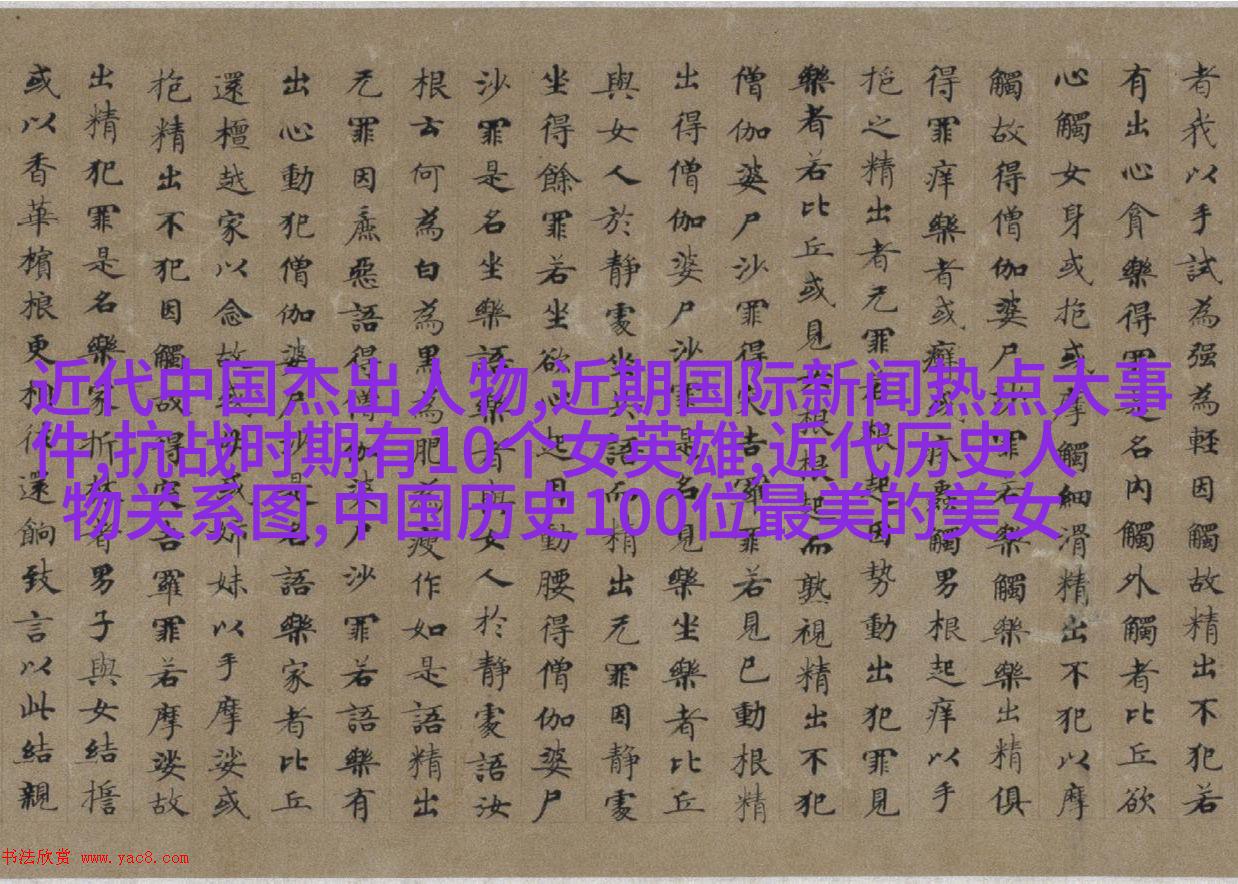 者我以手試為强為輕因觸故精出不犯若
有出心貪樂得罪是名内觸外觸者比丘欲
心觸女身或抱或摩觸細滑精出不犯以摩
觸故得僧伽婆尸沙罪若樂觸樂樂出精俱
得罪痒樂者或癬或觸男根起痒以手
抱之精出者无罪根起因勢動出犯罪見
樂者若比丘或見根根起而熟視精出不犯
僧伽婆尸沙罪得突吉羅罪若見已動根精
出得僧伽婆尸沙罪是名見樂坐樂者比丘
與女人於靜處坐共語而精出无罪因靜處
坐得餘罪若坐欲起已動腰得僧伽婆尸
沙罪是名坐樂語樂者與女人於靜處語汝
根云何為白為黑為肥為瘦作如是語精出
无罪因麁惡語得僧伽婆尸沙罪若語樂有
出心動犯僧伽婆尸沙是名語樂家者比丘
還檀越家以念故或妹以手摩娑或
抱精出不犯因觸故得突吉羅罪若摩娑故
出精犯罪是名樂家折者男子與女結誓
或以香華檳榔更相往還餉致言以此結親
近代中国杰出人物,近期国际新闻热点大事
件,抗战时期有10个女英雄,近代历史人
物关系图,中国历史100位最美的美女
书法欣赏 www.yac8.com